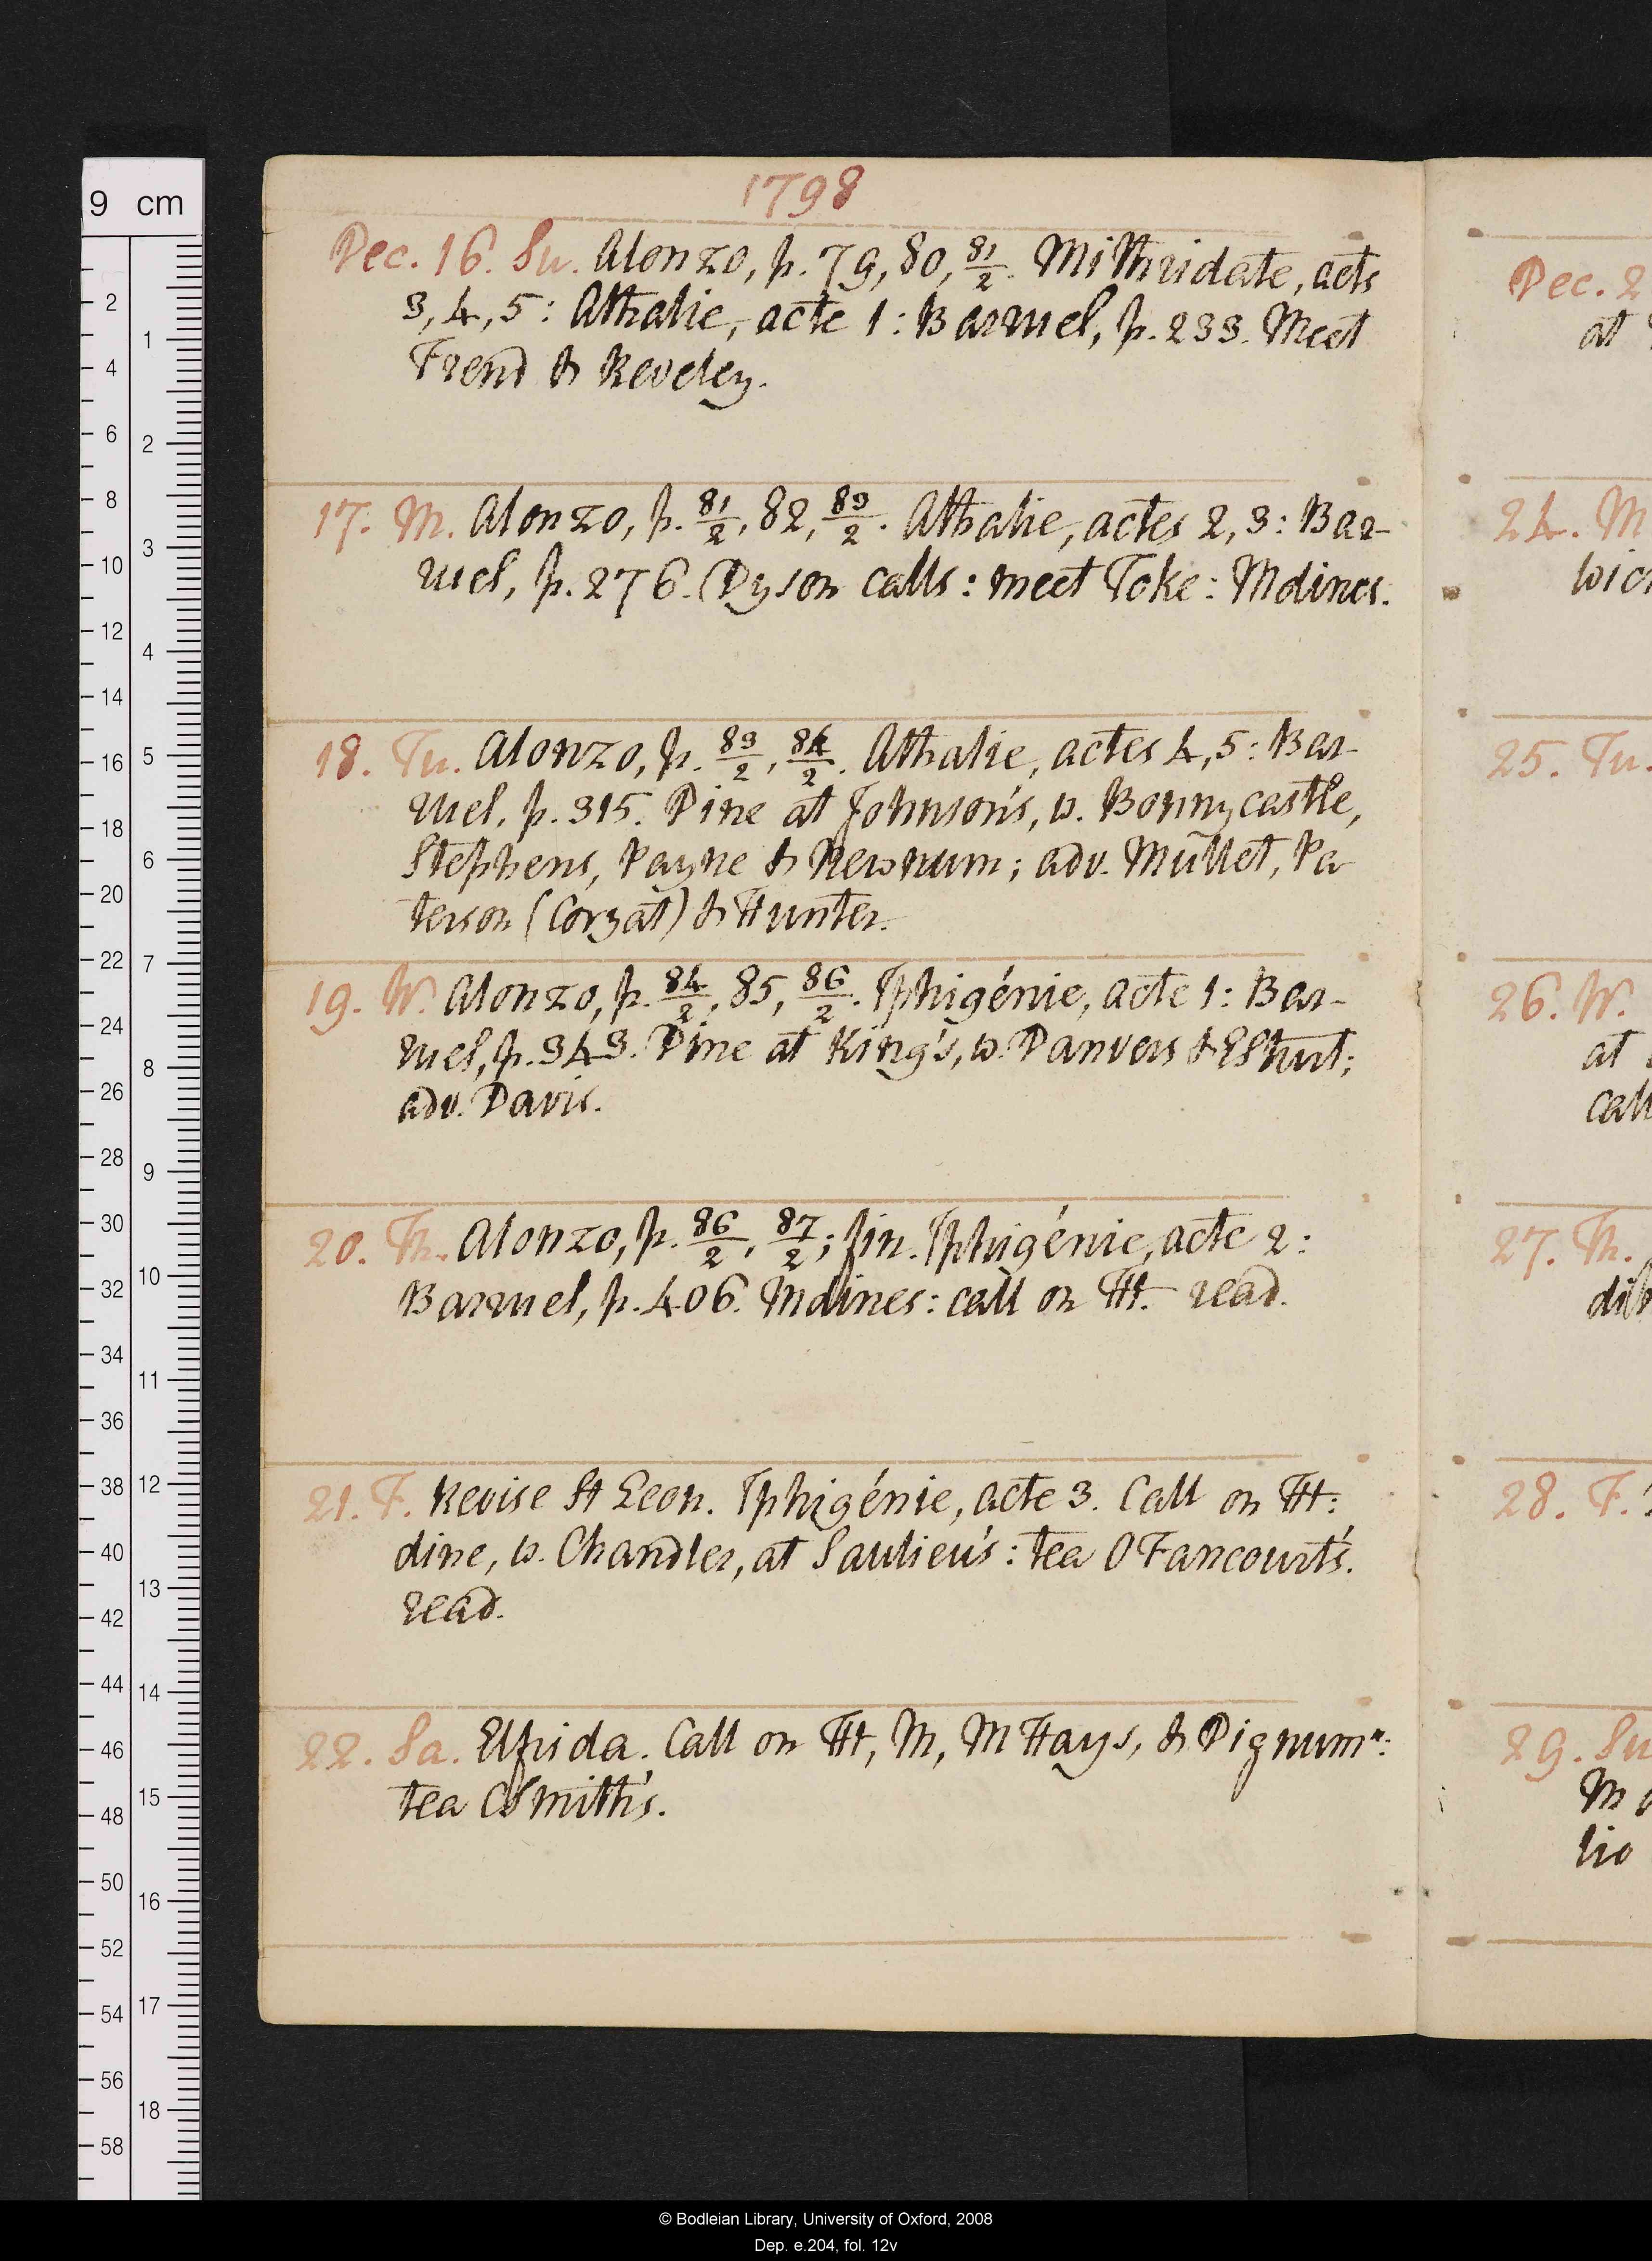 1798
Dec. 16. Su. Alonzo, p. 79, 80, 81/2. Mithridate, acts
3, 4, 5: Athalie, acte 1: Barruel, p. 233. Meet
Frend & Reveley.
17. M. Alonzo, p. 81/2, 82, 83/2. Athalie, actes 2, 3: Bar-
ruel, p. 276. Dyson calls: meet Toke: M dines.
18. Tu. Alonzo, p. 83/2, 84/2. Athalie, actes 4, 5: Bar-
ruel, p. 315. Dine at Johnson's, w. Bonnycastle,
Stephens, Payne & Newnum; adv. Mullet, Pa
terson (Coryat) & Hunter.
19. W. Alonzo, p. 84/2, 85, 86/2. Iphigénie, acte 1: Bar-
ruel, p. 343. Dine at King's, w. Danvers & Sthurt;
adv. Davis.
20. Th. Alonzo, p. 86/2, 87/2; fin. Iphigénie, acte 2:
Barruel, p. 406. M dines: call on Ht. read.
21. F. Revise St Leon. Iphigénie, acte 3. Call on Ht:
dine, w. Chandler, at Saulieu's: tea O Fancourt's.
read.
22. Sa. Elfrida. Call on Ht, M, M Hays, & Dignumn:
tea CSmith's.
Dec. 2
at
24. M
wic
25. Tu.
26. W.
at
call
27. Th.
28. F.
29. Su
M
lio
9 cm
2
4
6
8
10
12
14
16
18
20
22
24
26
28
30
32
34
36
38
40
42
44
46
48
50
52
54
56
58
1
2
3
4
5
6
7
8
9
10
11
12
13
14
15
16
17
18
© Bodleian Library, University of Oxford, 2008
Dep. e.204, fol. 12v